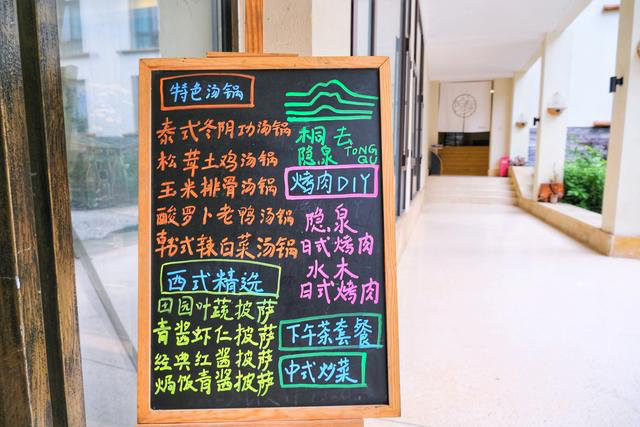 特色汤锅
泰式冬阴功汤锅
松茸土鸡汤锅
玉米排骨汤锅
酸罗卜老鸭汤锅
韩式辣白菜汤锅
西式精选
田园叶蔬披萨
青酱虾仁披萨
经典红酱披萨
焗饭青酱披萨
桐去
隐泉
TONG
QU
烤肉DIY
隐泉
日式烤肉
水木
日式烤肉
下午茶套餐
中式炒菜